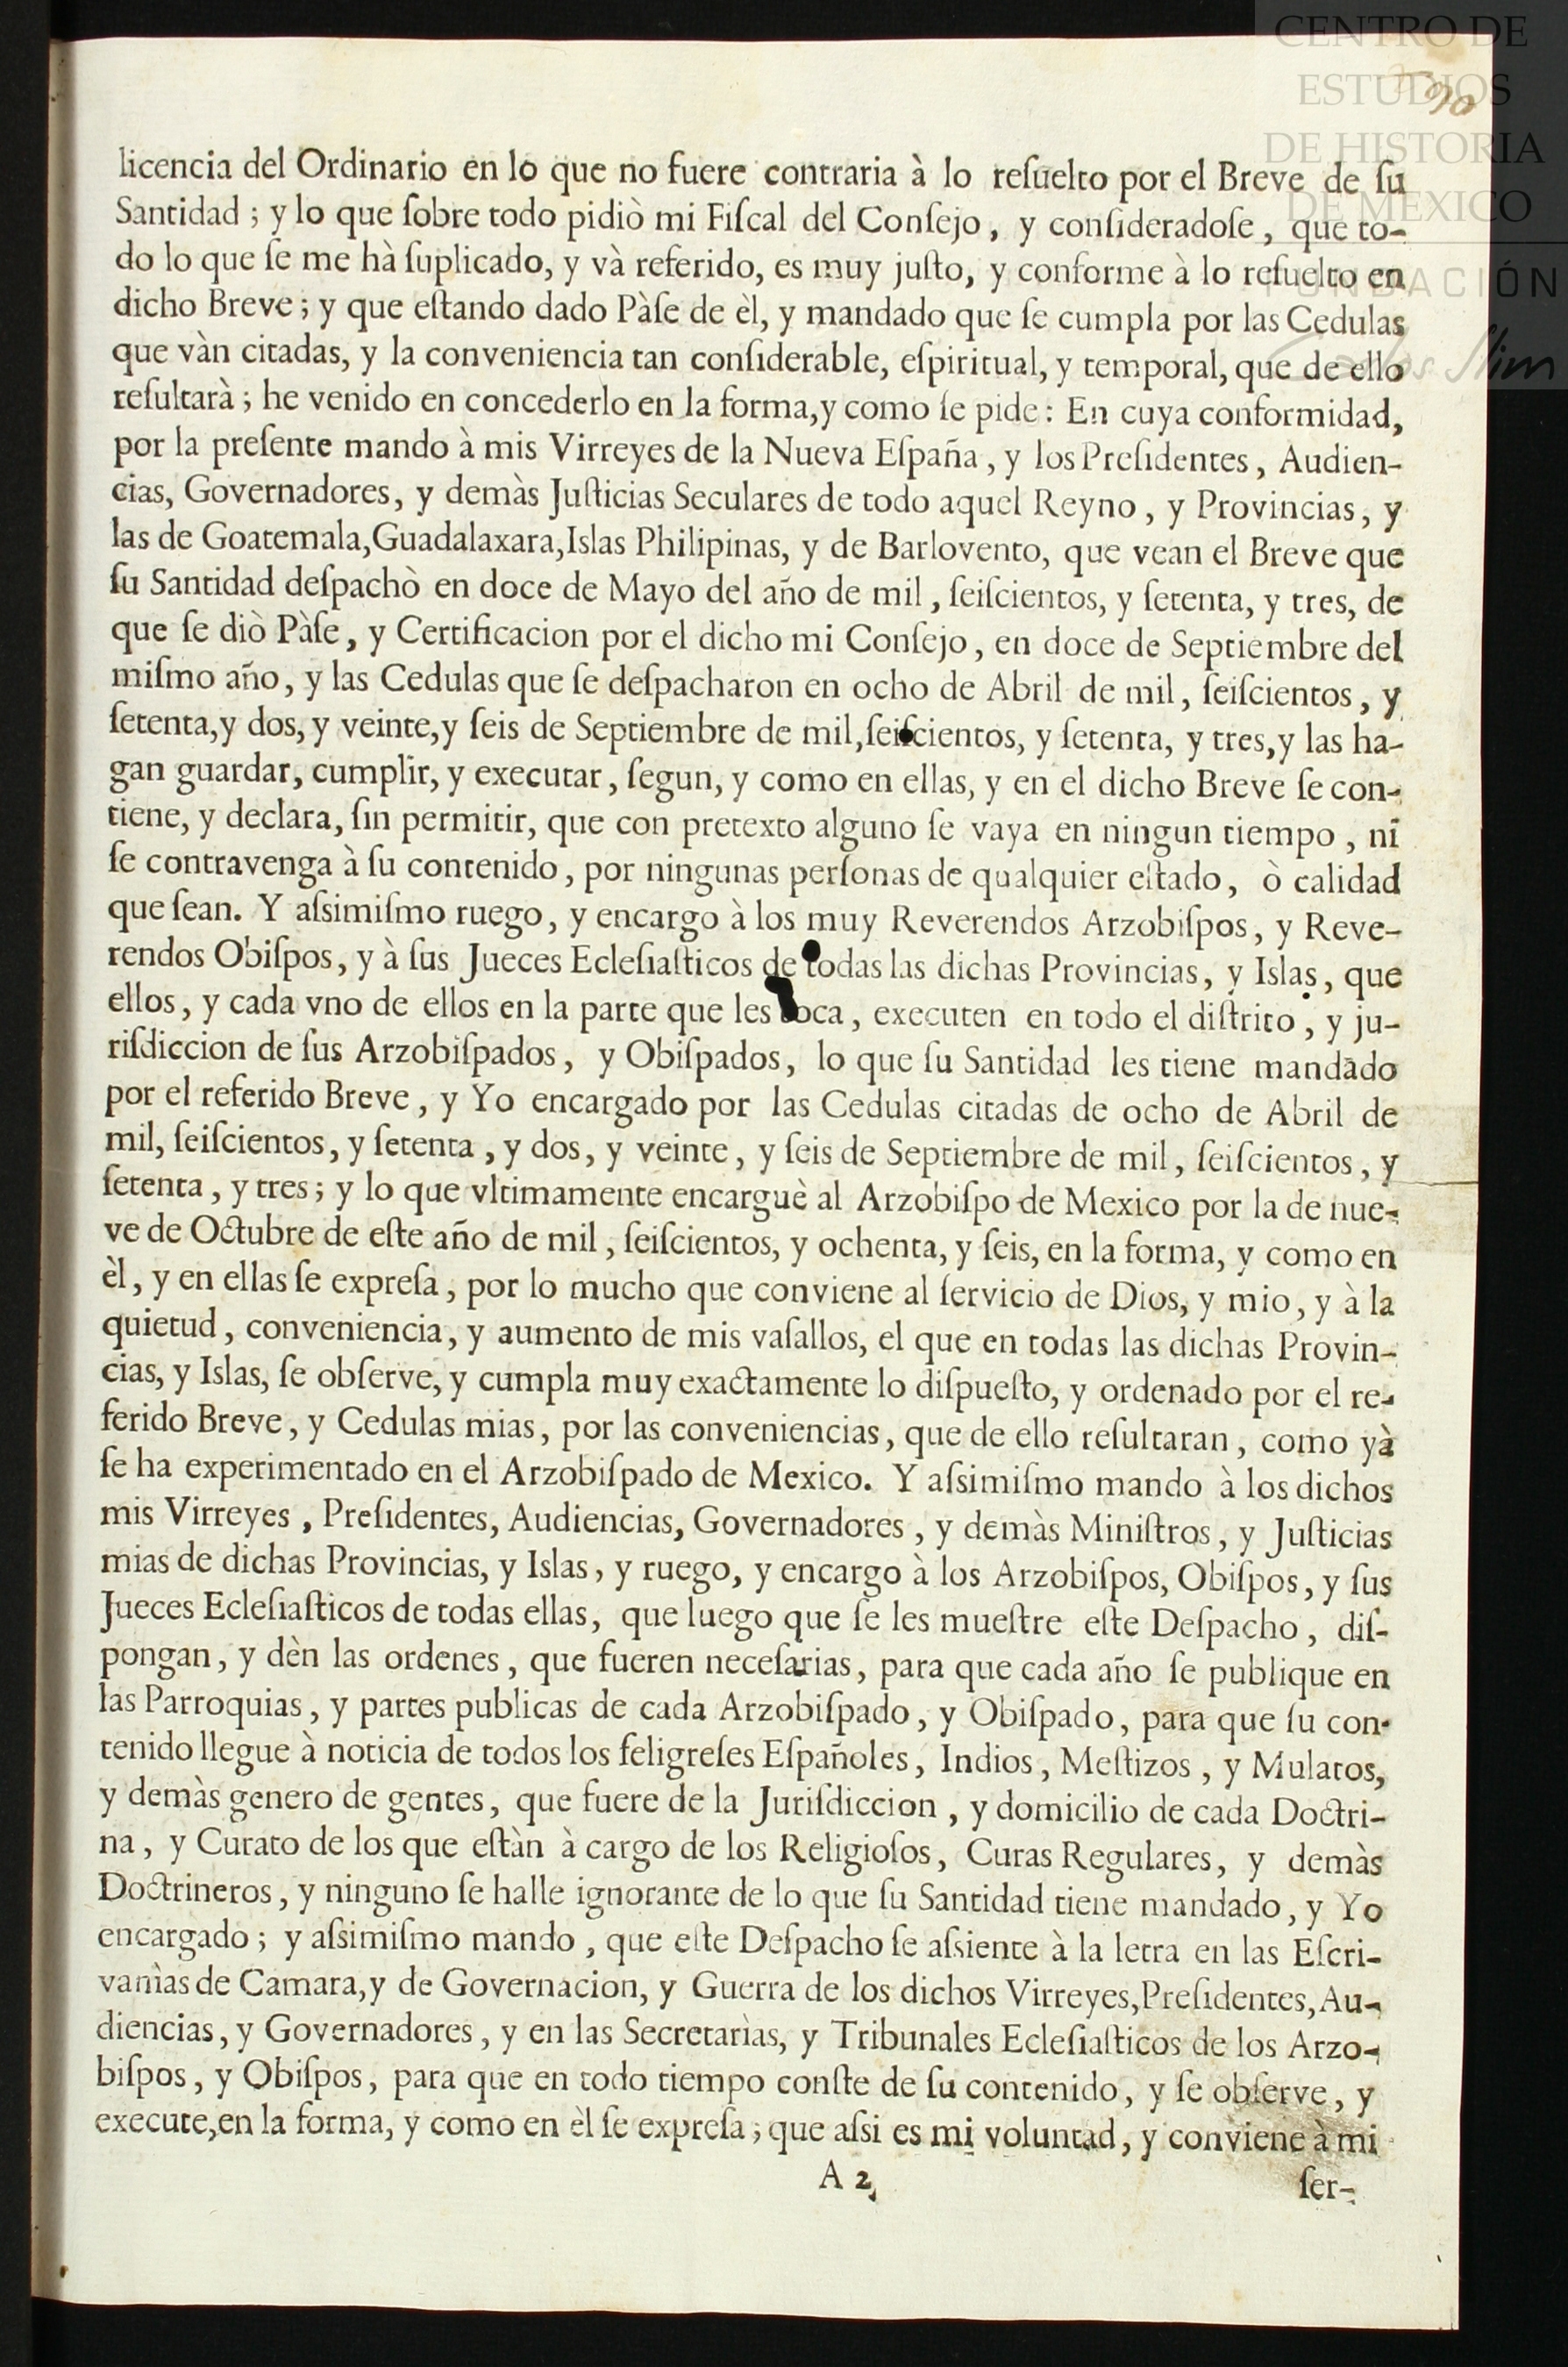 CENTRO DE
ESTUDIOS
DE HISTORIA
DE MEXICO
FUNDACIÓN
Carlos Slim
90
licencia del Ordinario en lo que no fuere contraria à lo reſuelto por el Breve de ſu
Santidad ; y lo que ſobre todo pidiò mi Fiſcal del Conſejo, y conſideradoſe, que to-
do lo que ſe me hà ſuplicado, y và referido, es muy juſto, y conforme à lo reſuelto en
dicho Breve ; y que eſtando dado Pàſe de èl, y mandado que ſe cumpla por las Cedulas
que vàn citadas, y la conveniencia tan conſiderable, eſpiritual, y temporal, que de ello
reſultarà ; he venido en concederlo en la forma,y como ſe pide : En cuya conformidad,
por la preſente mando à mis Virreyes de la Nueva Eſpaña, y los Preſidentes, Audien-
cias, Governadores, y demàs Juſticias Seculares de todo aquel Reyno, y Provincias, y
las de Goatemala,Guadalaxara,Islas Philipinas, y de Barlovento, que vean el Breve que
ſu Santidad deſpachò en doce de Mayo del año de mil, ſeiſcientos, y ſetenta, y tres, de
que ſe diò Pàſe, y Certificacion por el dicho mi Conſejo, en doce de Septiembre del
miſmo año, y las Cedulas que ſe deſpacharon en ocho de Abril de mil, ſeiſcientos, y
ſetenta,y dos, y veinte,y ſeis de Septiembre de mil,ſeiſcientos, y ſetenta, y tres,y las ha-
gan guardar, cumplir, y executar, ſegun, y como en ellas, y en el dicho Breve ſe con-
tiene, y declara, ſin permitir, que con pretexto alguno ſe vaya en ningun tiempo, ni
ſe contravenga à ſu contenido, por ningunas perſonas de qualquier eſtado, ò calidad
que ſean. Y aſsimiſmo ruego, y encargo à los muy Reverendos Arzobiſpos, y Reve-
rendos Obiſpos, y à ſus Jueces Ecleſiaſticos de todas las dichas Provincias, y Islas, que
ellos, y cada vno de ellos en la parte que les toca, executen en todo el diſtrito, y ju-
riſdiccion de ſus Arzobiſpados, y Obiſpados, lo que ſu Santidad les tiene mandado
por el referido Breve, y Yo encargado por las Cedulas citadas de ocho de Abril de
mil, ſeiſcientos, y ſetenta, y dos, y veinte, y ſeis de Septiembre de mil, ſeiſcientos, y
ſetenta, y tres ; y lo que vltimamente encarguè al Arzobiſpo de Mexico por la de nue-
ve de Octubre de eſte año de mil, ſeiſcientos, y ochenta, y ſeis, en la forma, y como en
èl, y en ellas ſe expreſa, por lo mucho que conviene al ſervicio de Dios, y mio, y à la
quietud, conveniencia, y aumento de mis vaſallos, el que en todas las dichas Provin-
cias, y Islas, ſe obſerve, y cumpla muy exactamente lo diſpueſto, y ordenado por el re-
ferido Breve, y Cedulas mias, por las conveniencias, que de ello reſultaran, como yà
ſe ha experimentado en el Arzobiſpado de Mexico. Y aſsimiſmo mando à los dichos
mis Virreyes, Preſidentes, Audiencias, Governadores, y demàs Miniſtros, y Juſticias
mias de dichas Provincias, y Islas, y ruego, y encargo à los Arzobiſpos, Obiſpos, y ſus
Jueces Ecleſiaſticos de todas ellas, que luego que ſe les mueſtre eſte Deſpacho, diſ-
pongan, y dèn las ordenes, que fueren neceſarias, para que cada año ſe publique en
las Parroquias, y partes publicas de cada Arzobiſpado, y Obiſpado, para que ſu con-
tenido llegue à noticia de todos los feligreſes Eſpañoles, Indios, Meſtizos, y Mulatos,
y demàs genero de gentes, que fuere de la Juriſdiccion, y domicilio de cada Doctri-
na, y Curato de los que eſtàn à cargo de los Religioſos, Curas Regulares, y demàs
Doctrineros, y ninguno ſe halle ignorante de lo que ſu Santidad tiene mandado, y Yo
encargado ; y aſsimiſmo mando, que eſte Deſpacho ſe aſsiente à la letra en las Eſcri-
vanìas de Camara,y de Governacion, y Guerra de los dichos Virreyes,Preſidentes,Au-
diencias, y Governadores, y en las Secretarìas, y Tribunales Ecleſiaſticos de los Arzo-
biſpos, y Obiſpos, para que en todo tiempo conſte de ſu contenido, y ſe obſerve, y
execute,en la forma, y como en èl ſe expreſa ; que aſsi es mi voluntad, y conviene à mi
A 2
ſer-